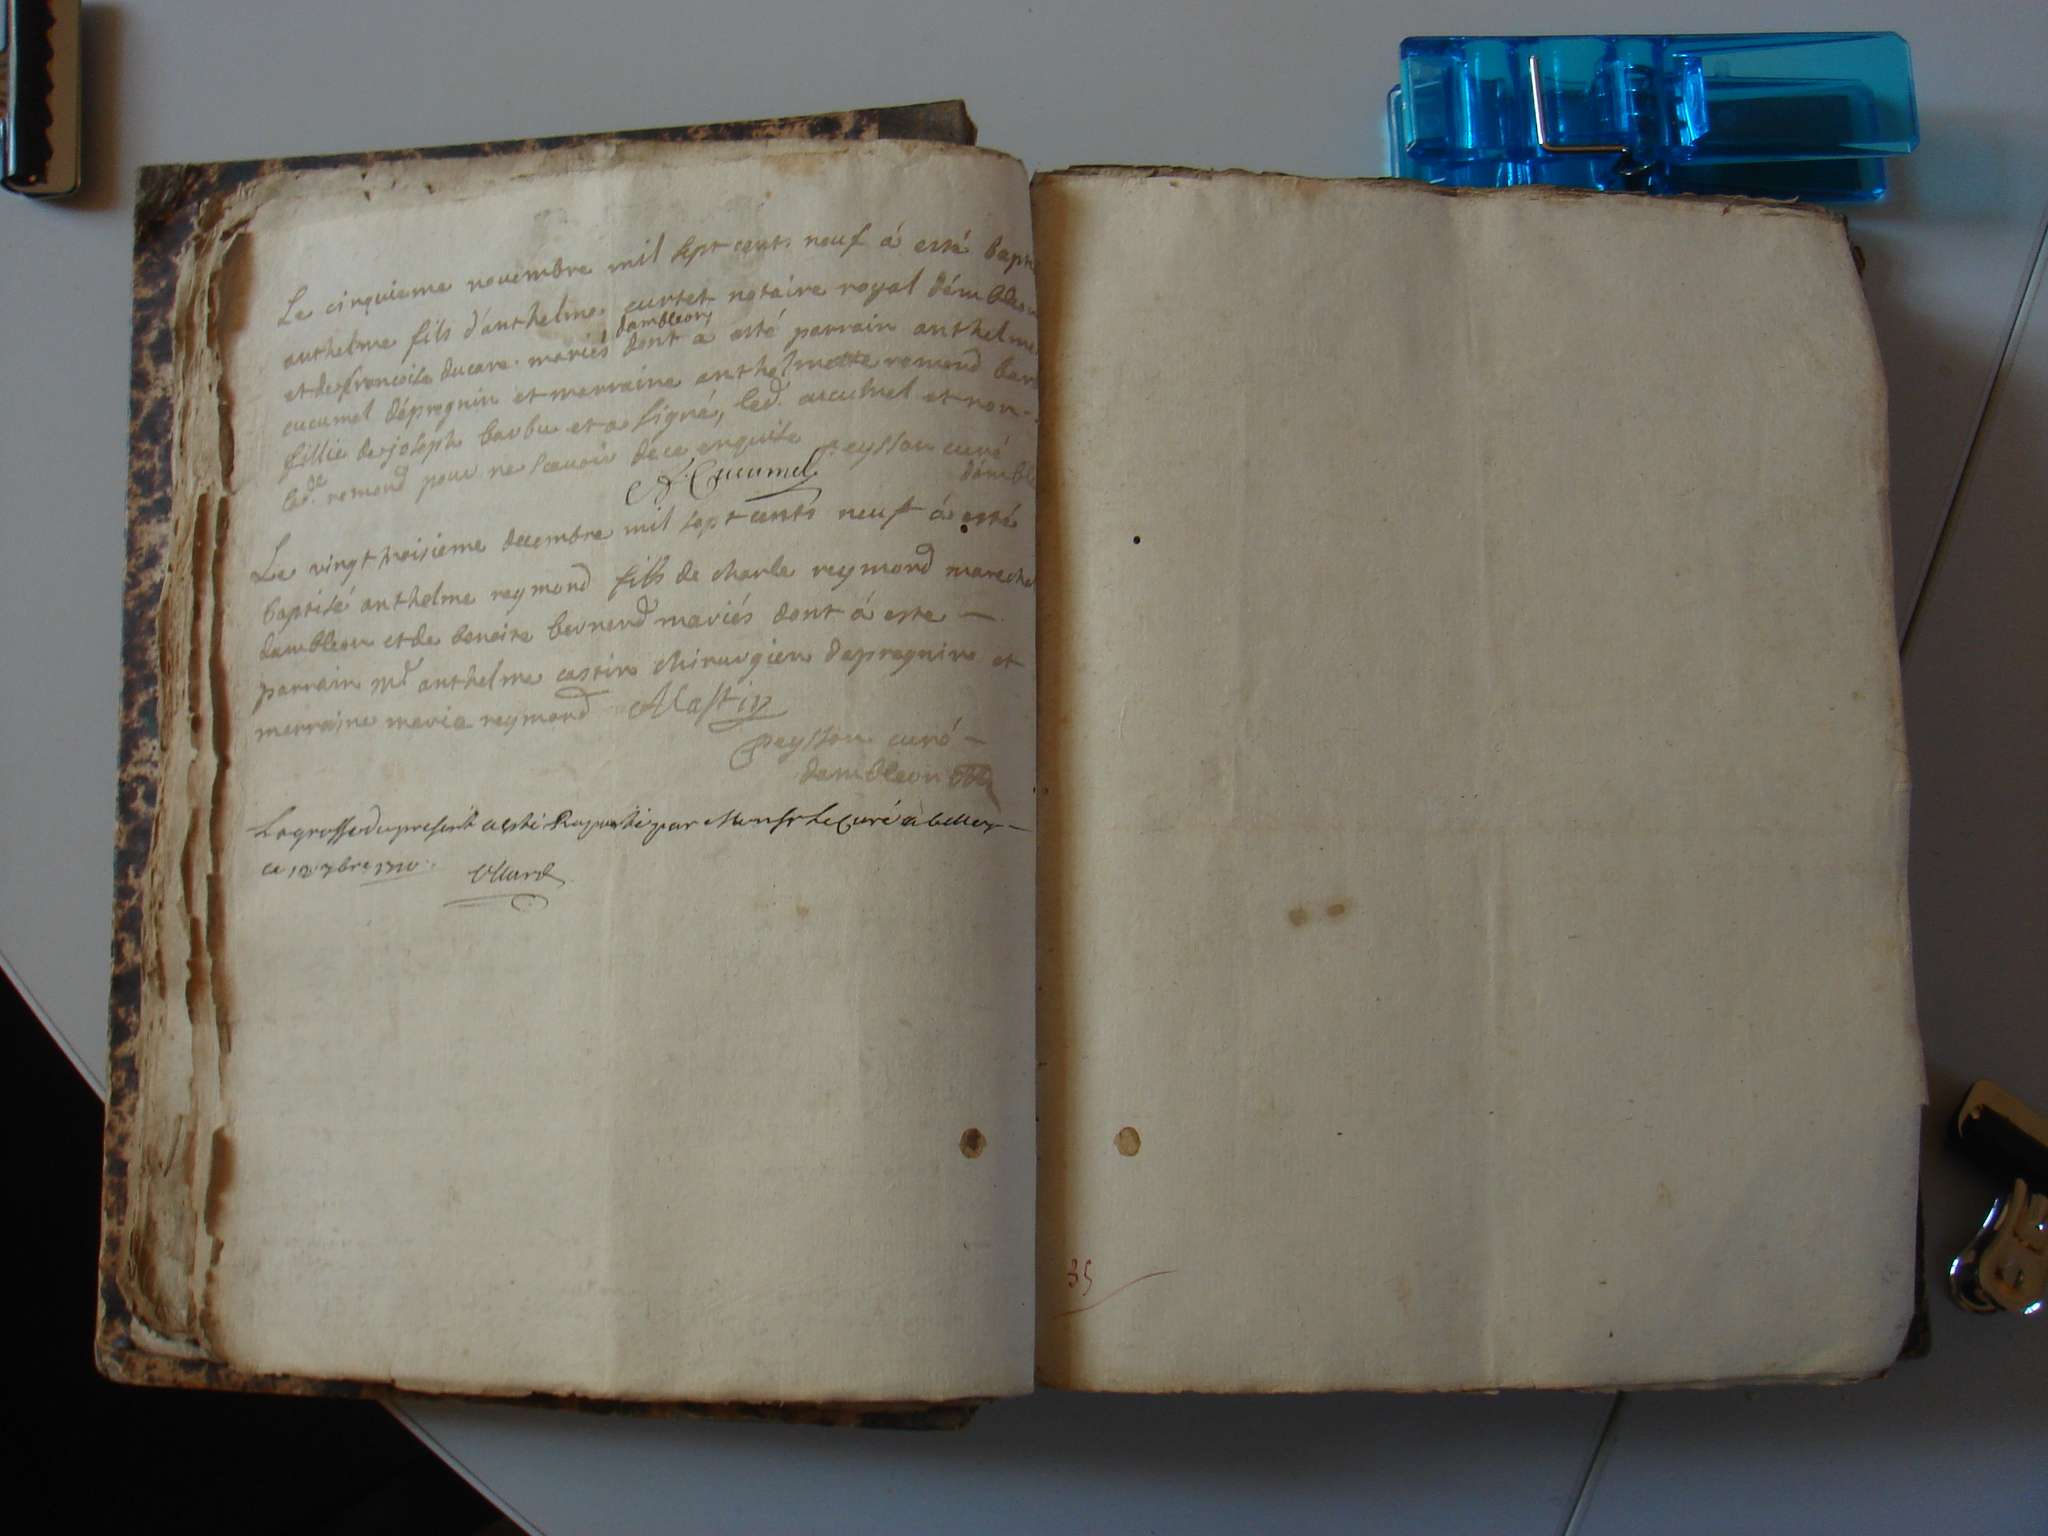 Le cinquieme novembre mil sept cents neuf á esté bapti
anthelme fils d'anthelme curtet notaire royal dámbleon
et de francoise ducare mariés dambleon dont a esté parrain anthelme
cucumel dépregnin et merraine anthelmette remond
fillie de joseph barbu et a signé, led. cucumel et non
lad.e remond pour ne scavoir de ce enquise peysson curé
A. Cucumel dámble
Le vingt troisieme decembre mil sept cents neuf á esté
baptisé anthelme reymond fils de charle reymond marecha
dambleon et de benoite bernerd mariés dont á este
parrain Mr anthelme castin chirurgien depregnin et
merraine marie reymond ACastin
peysson curé
dambleon
La grosse du present a esté Raportée par Monsr le Curé à belley
ce 12 7bre 1710
35